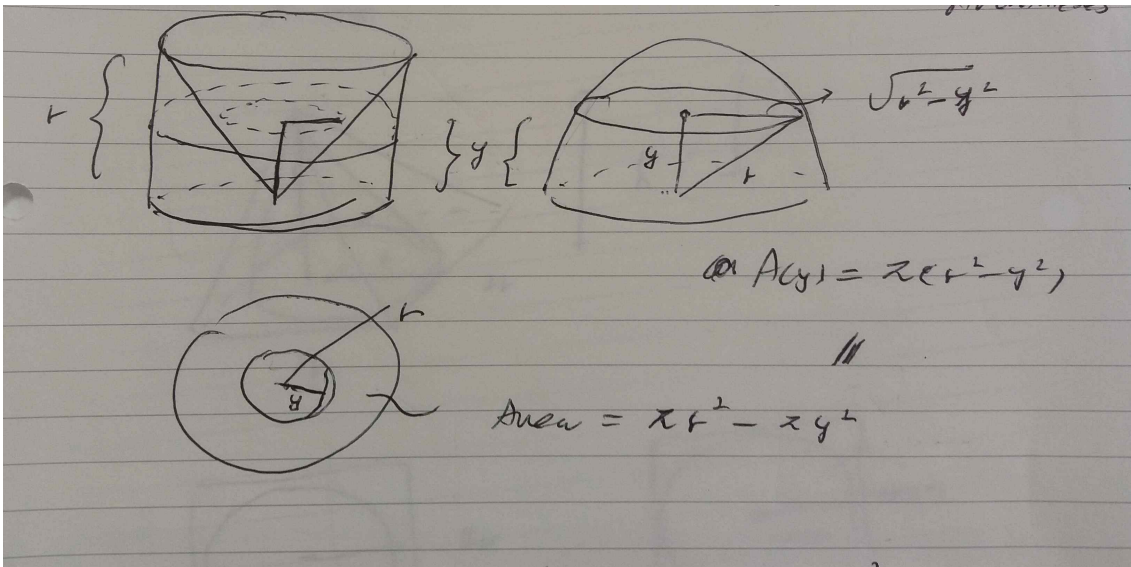 r { } y { √r² - y²
y r
A(y) = π(r² - y²)
r
y
Area = πr² - πy²